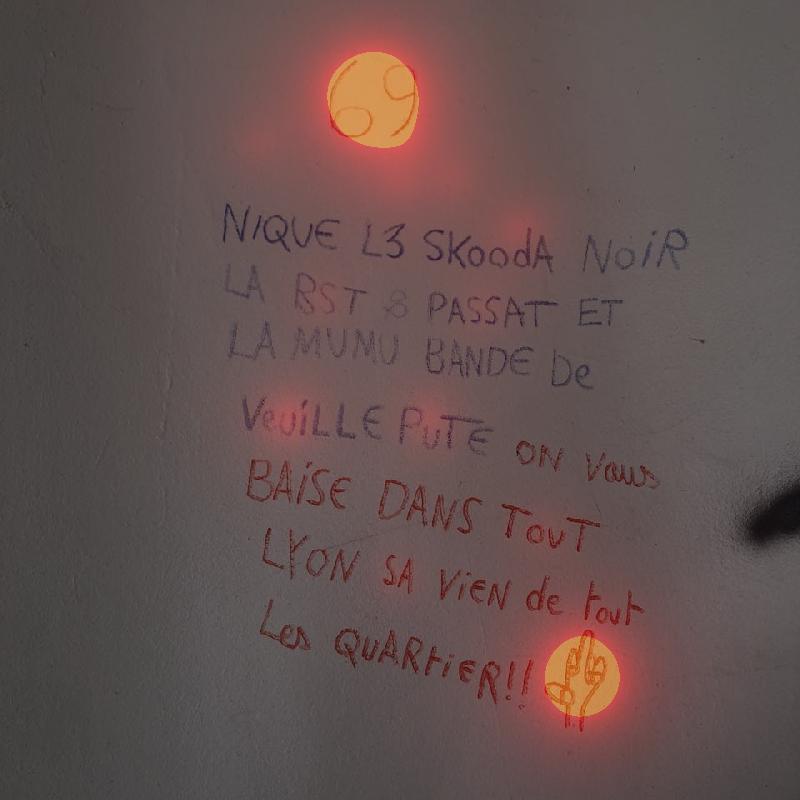 69
NIQUE L3 SKOODA NOiR
LA BST & PASSAT ET
LA MUMU BANDE De
VeuiLLE PuTE ON Vous
BAiSE DANS TouT
LYON SA ViEN de tout
Les QUARtiER!!